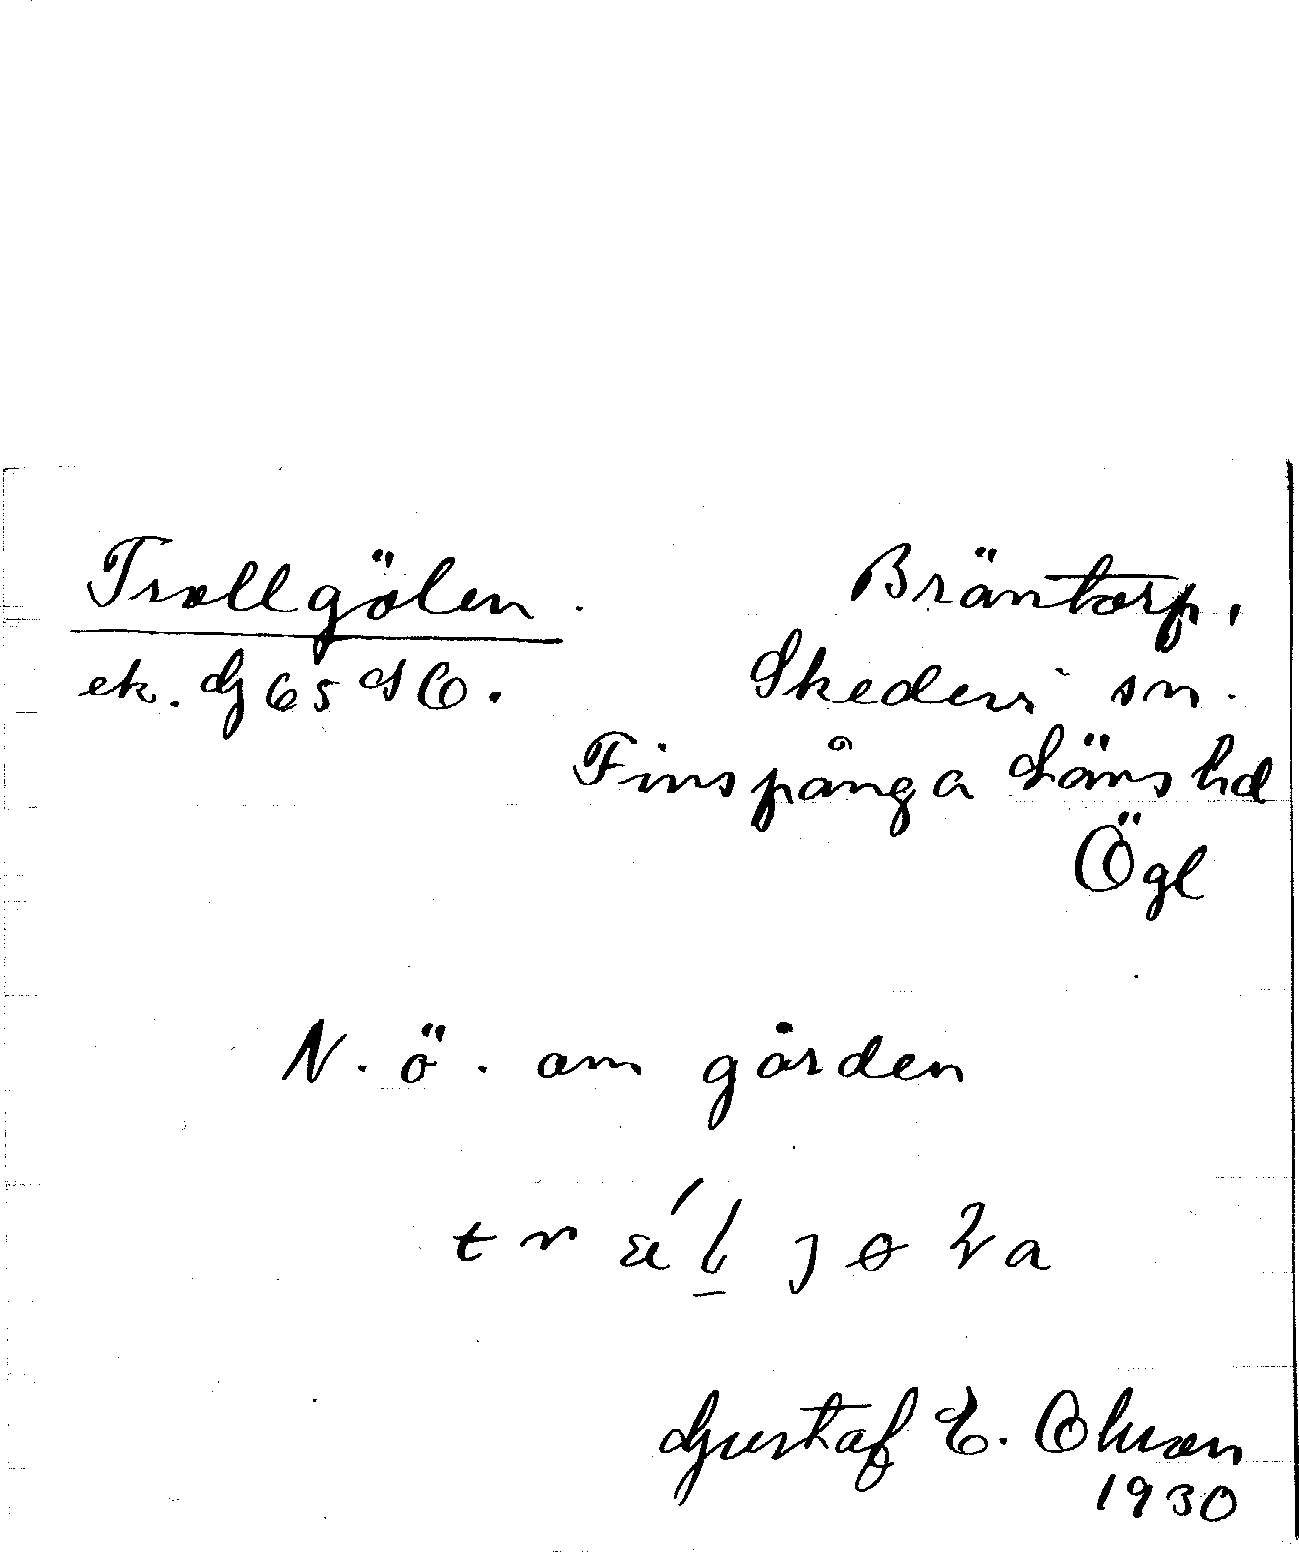 Trollgölen.
Bräntorp,
ek. G 65 SO.
Skedevi sn.
Finspånga Läns hd
Ögl
N. ö. om gården
Gustaf E. Olsson
1930